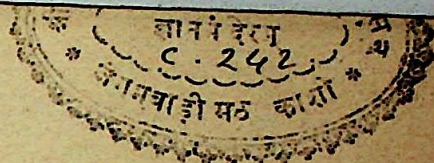 ज्ञान मंदिर
C. 242
जंगमवाडी मठ काशी